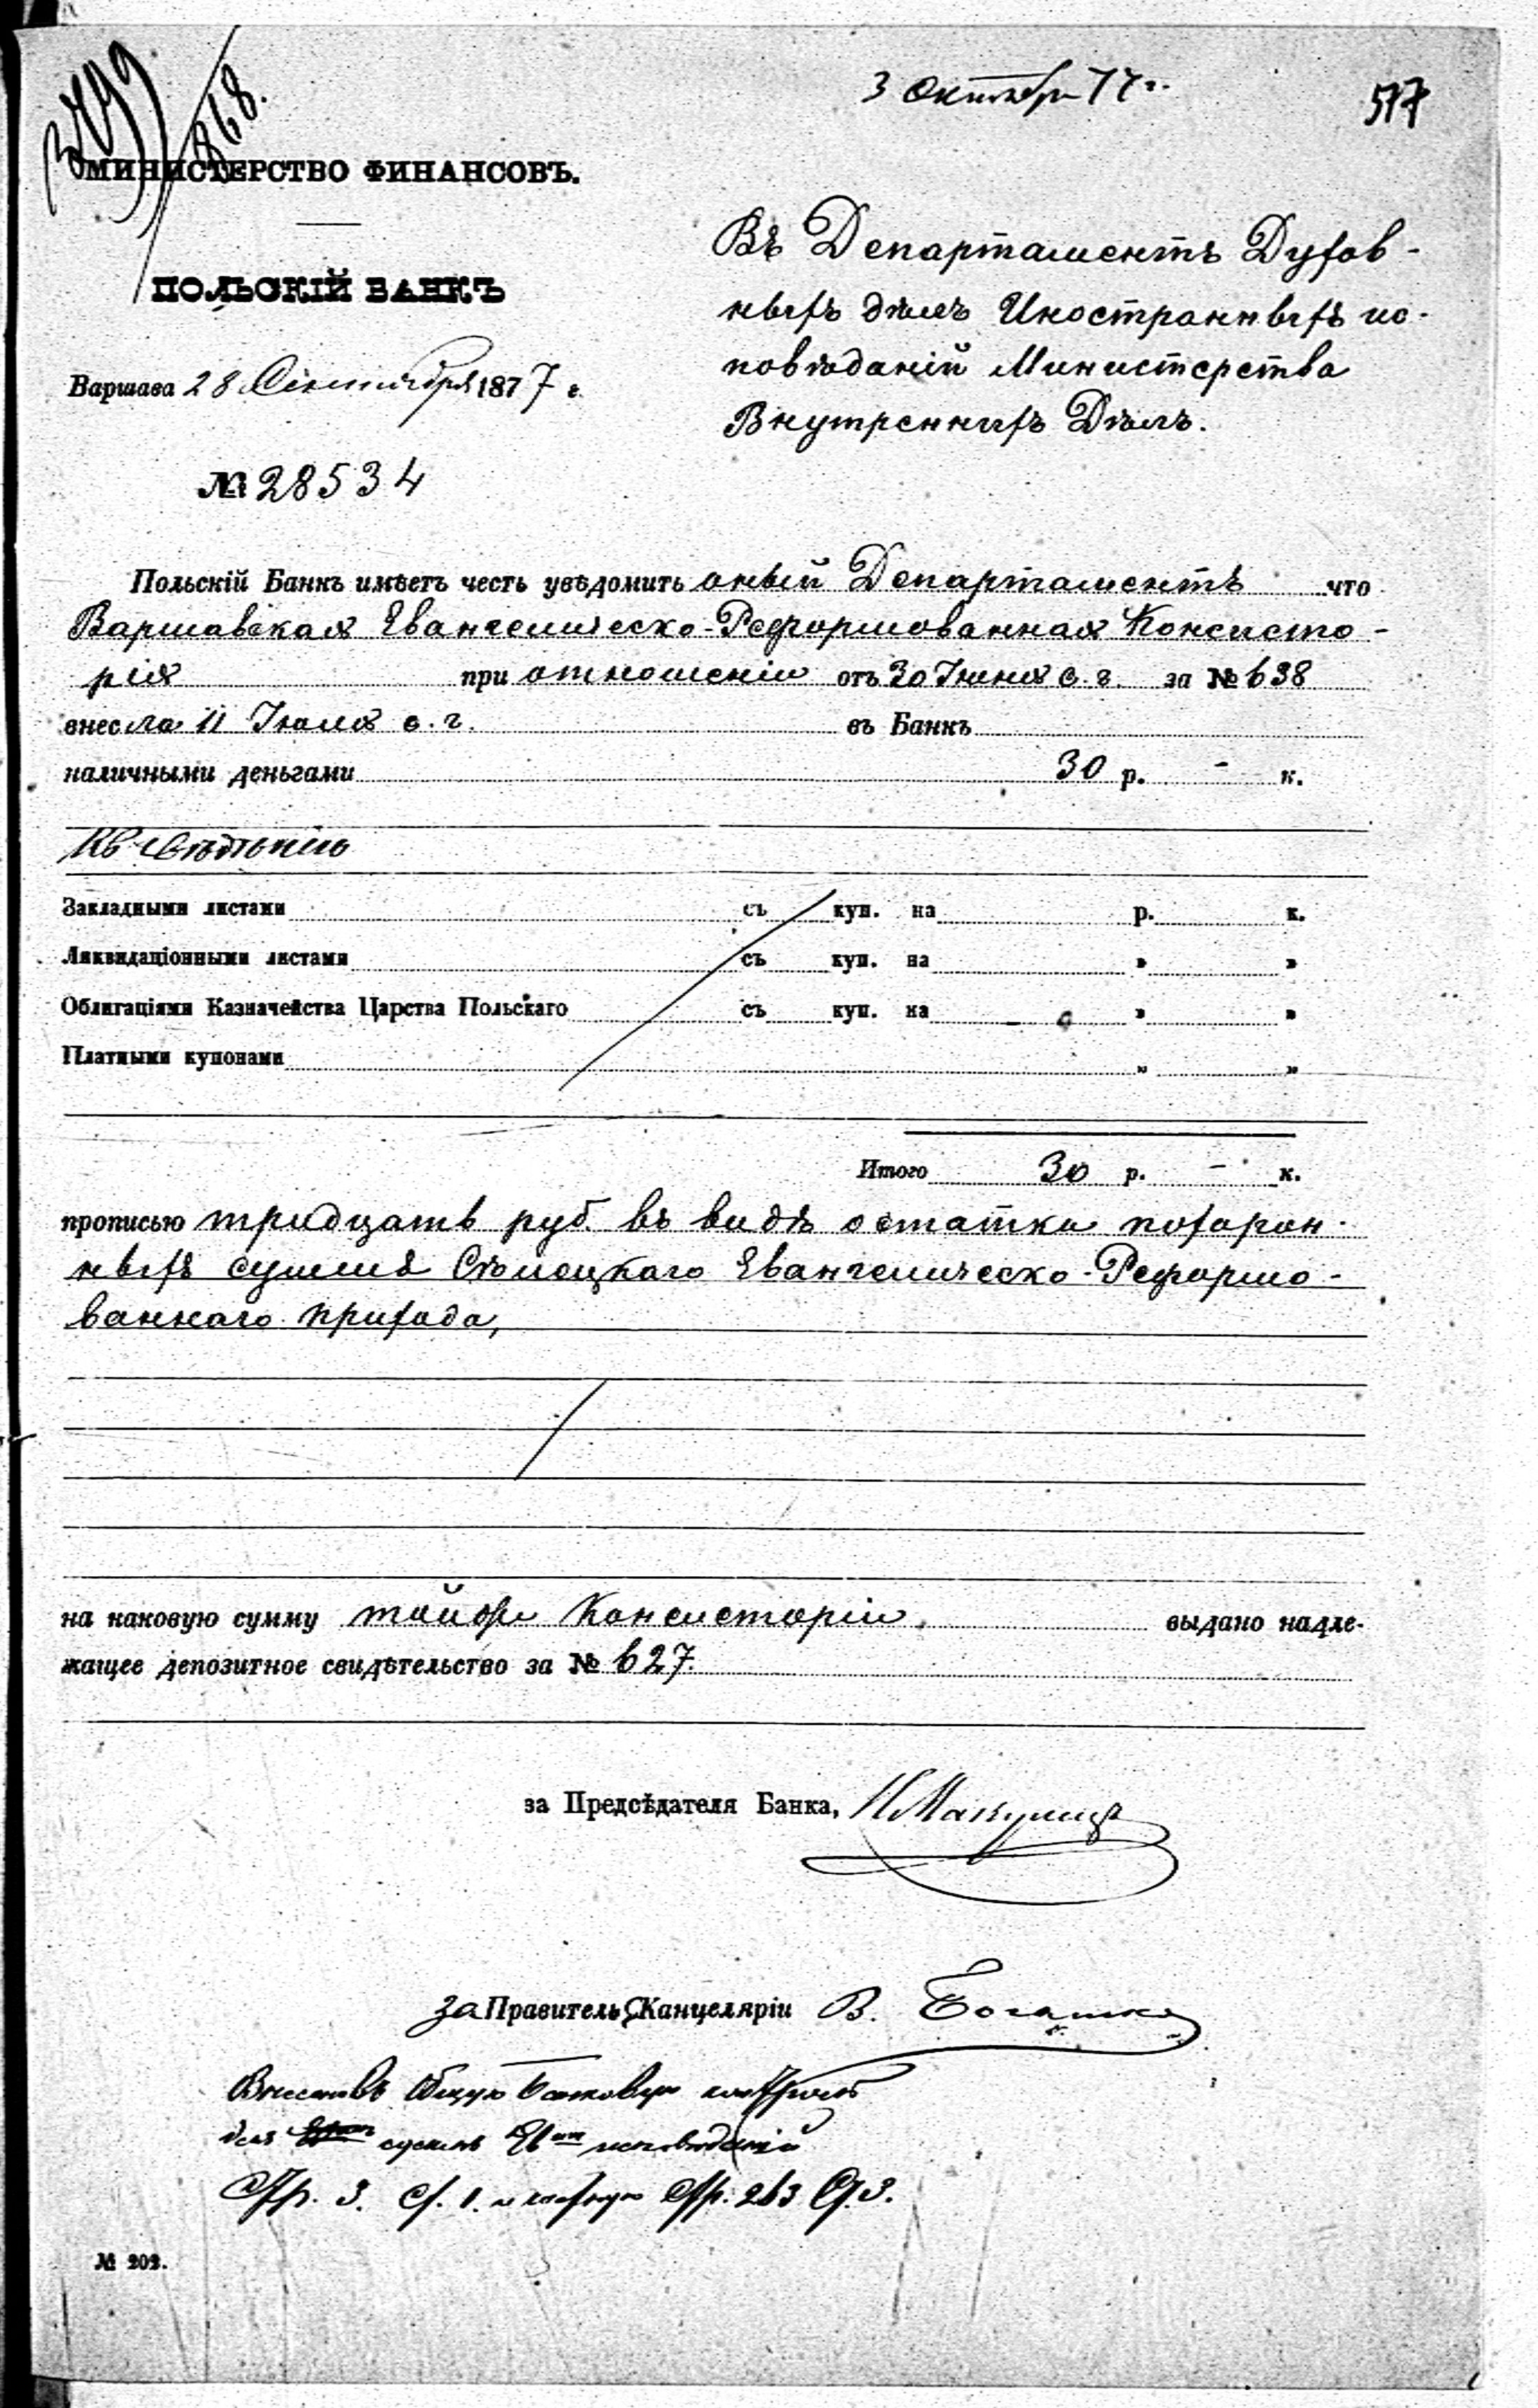 3 Октября 77 г.
517
МИНИСТЕРСТВО ФИНАНСОВЪ.
ПОЛЬСКІЙ БАНКЪ
Варшава 28 Сентября 1877 г.
№ 28534
Въ Департаментъ Духов-
ныхъ дѣлъ Иностранныхъ ис-
повѣданій Министерства
Внутреннихъ Дѣлъ.
Польскій Банкъ имѣетъ честь увѣдомить оный Департаментъ что
Варшавская Евангелическо-Реформованная Консисто-
рія при отношеніи отъ 30 Іюня с. г. за № 638
внесла 11 Іюля с. г. въ Банкъ
наличными деньгами 30 р. - к.
Къ свѣдѣнію
Закладными листами съ куп. на р. к.
Ликвидаціонными листами съ куп. на » »
Облигаціями Казначейства Царства Польскаго съ куп. на » »
Платными купонами „ »
Итого 30 р. - к.
прописью тридцать руб. въ видѣ остатка похорон-
ныхъ суммъ Сѣлецкаго Евангелическо-Реформо-
ваннаго прихода,
на каковую сумму тойже Консисторіи, выдано надле-
жащее депозитное свидѣтельство за № 627.
за Предсѣдателя Банка,
за Правитель Канцеляріи В.
Общую
для суммъ исповѣданій
Стр. 3. Ст. 1. Стр. 263 Ст. 3.
№ 202.